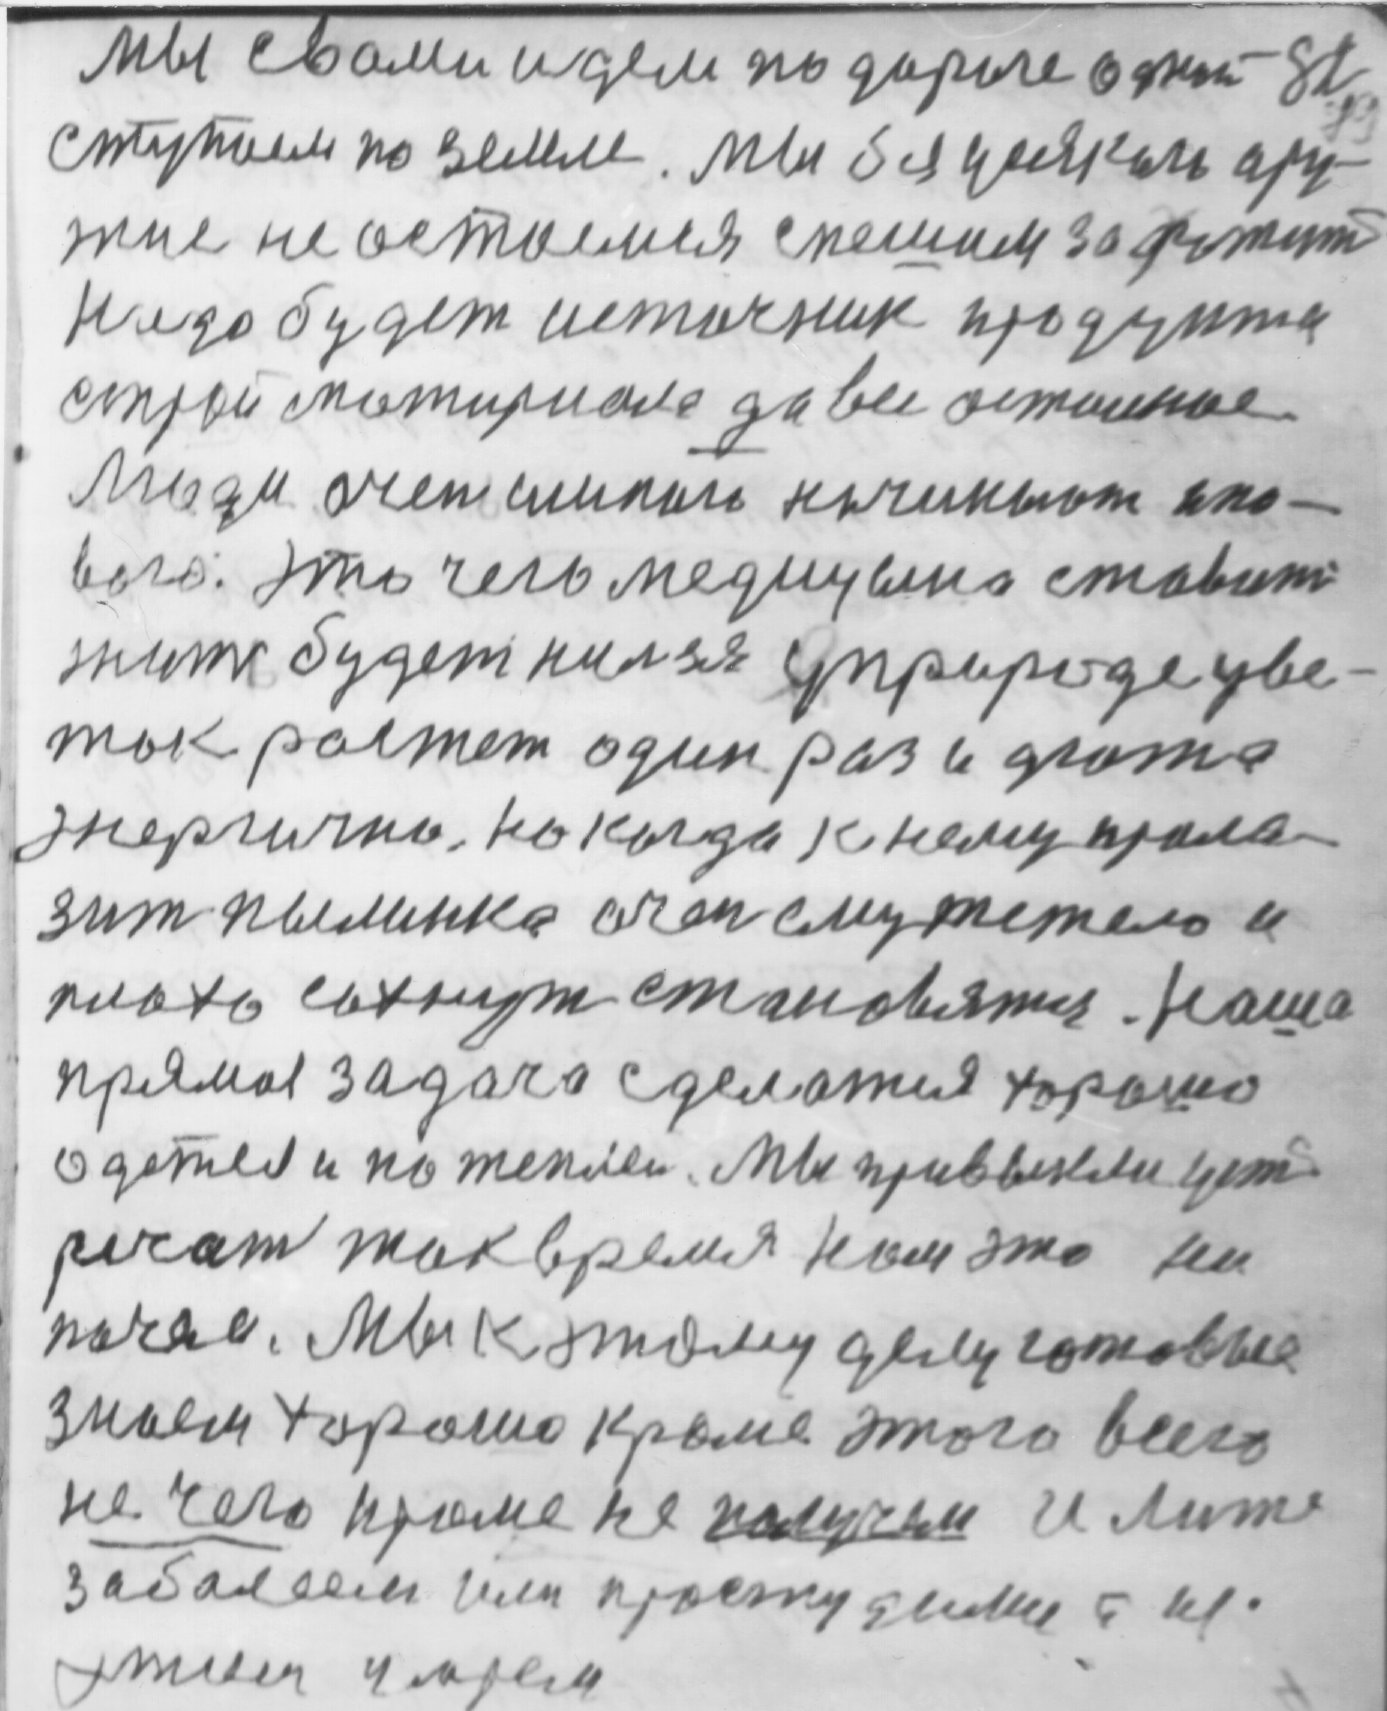 Мы свами идем по дороге одной 81
ступаем по земле. Мы без
не остаемся спешим за
Надо будет источник продукта
строй матириала да все остальное
Люди начинают
вого. Это чего медицына ставит
жить будет нилзя у природе цве-
ток ростет один раз и
энергично. Но когда к нему прола-
зит пылинка очен ему тежело и
плохо сохнут становятся. Наша
прямая задача сделатся хорошо
одется и потеплей. Мы привыкли уст
речат так время нам это ни
почем. Мы к этому делу готовые
знаем хорошо кроме этого всего
не чего кроме не получем и
забалеем или простудимся и
этим умрем